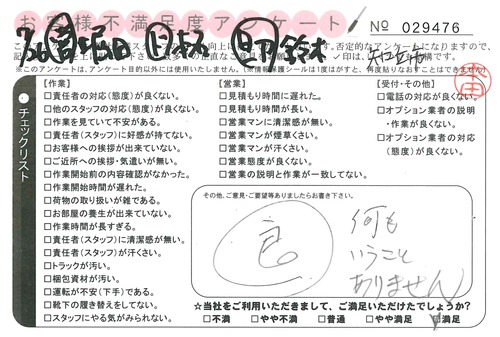 お客様不満足度アンケート
№ 029476
7/26
鈴木
※このアンケートは、アンケート目的以外には使用いたしません。(※情報保護シールは1度はがすと、再度貼りなおすことはできません)
チェックリスト
【作業】
□責任者の対応(態度)が良くない。
□他のスタッフの対応(態度)が良くない。
□作業を見ていて不安がある。
□責任者(スタッフ)に好感が持てない。
□お客様への挨拶が出来ていない。
□ご近所への挨拶・気遣いが無い。
□作業開始前の内容確認がなかった。
□作業開始時間が遅れた。
□荷物の取り扱いが雑である。
□お部屋の養生が出来ていない。
□作業時間が長すぎる。
□責任者(スタッフ)に清潔感が無い。
□責任者(スタッフ)が汗くさい。
□トラックが汚い。
□梱包資材が汚い。
□運転が不安(下手)である。
□靴下の履き替えをしてない。
□スタッフにやる気がみられない。
【営業】
□見積もり時間に遅れた。
□見積もり時間が長い。
□営業マンに清潔感が無い。
□営業マンが煙草くさい。
□営業マンが汗くさい。
□営業の態度が良くない。
□営業の説明と作業が一致してない。
【受付・その他】
□電話の対応が良くない。
□オプション業者の説明
・作業が良くない。
□オプション業者の対応
(態度)が良くない。
その他、ご意見・ご要望等ありましたらお書き下さい。
良
何も
いうこと
ありません
☆当社をご利用いただきまして、ご満足いただけたでしょうか?
□不満 □やや不満 □普通 □やや満足 ☑満足